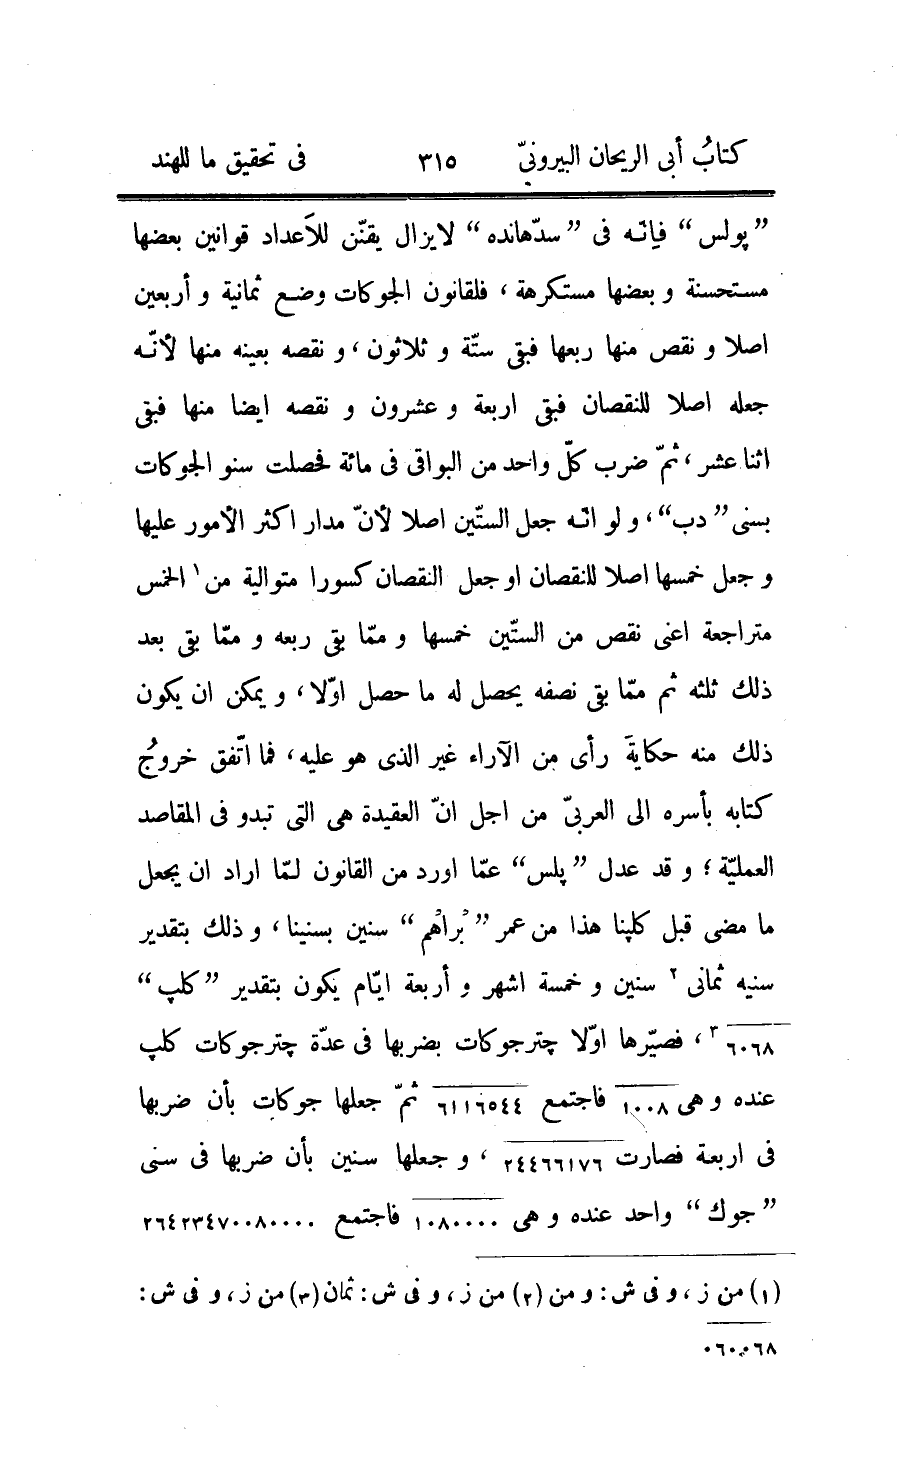 كتابُ أبى الريحان البيرونىّ ٣١٥ فى تحقيق ما للهند
”پولس“ فإنّه فى ”سدّهانده“ لايزال يقنّن للأعداد قوانين بعضها
مستحسنة و بعضها مستكرهة ، فلقانون الجوكات وضع ثمانية و أربعين
اصلا و نقص منها ربعها فبقى ستّة و ثلاثون ، و نقصه بعينه منها لأنّه
جعله اصلا للنقصان فبقى اربعة و عشرون و نقصه ايضا منها فبقى
اثنا عشر ، ثمّ ضرب كلّ واحد من البواقى فى مائة فحصلت سنو الجوكات
بسنى ”دب“ ، و لو انّه جعل الستّين اصلا لأنّ مدار اكثر الأمور عليها
و جعل خمسها اصلا للنقصان او جعل النقصان كسورا متوالية من ١ الخمس
متراجعة اعنى نقص من الستّين خمسها و ممّا بقى ربعه و ممّا بقى بعد
ذلك ثلثه ثم ممّا بقى نصفه يحصل له ما حصل اوّلا ، و يمكن ان يكون
ذلك منه حكايةَ رأى من الآراء غير الذى هو عليه ، فما اتّفق خروجُ
كتابه بأسره الى العربىّ من اجل انّ العقيدة هى التى تبدو فى المقاصد
العمليّة ؛ و قد عدل ”پلس“ عمّا اورد من القانون لمّا اراد ان يجعل
ما مضى قبل كلپنا هذا من عمر ”بُراهُم“ سنين بسنينا ، و ذلك بتقدير
سنيه ثمانى ٢ سنين و خمسة اشهر و أربعة ايّام يكون بتقدير ”كلپ“
٦٠٦٨ ٣ ، فصيّرها اوّلا چترجوكات بضربها فى عدّة چترجوكات كلپ
عنده و هى ١٠٠٨ فاجتمع ٦١١٦٥٤٤ ثمّ جعلها جوكات بأن ضربها
فى اربعة فصارت ٢٤٤٦٦١٧٦ ، و جعلها سنين بأن ضربها فى سنى
”جوك“ واحد عنده و هى ١٠٨٠٠٠٠ فاجتمع ٢٦٤٢٣٤٧٠٠٨٠٠٠٠
(١) من ز ، و فى ش : و من (٢) من ز ، و فى ش : ثمان (٣) من ز ، و فى ش :